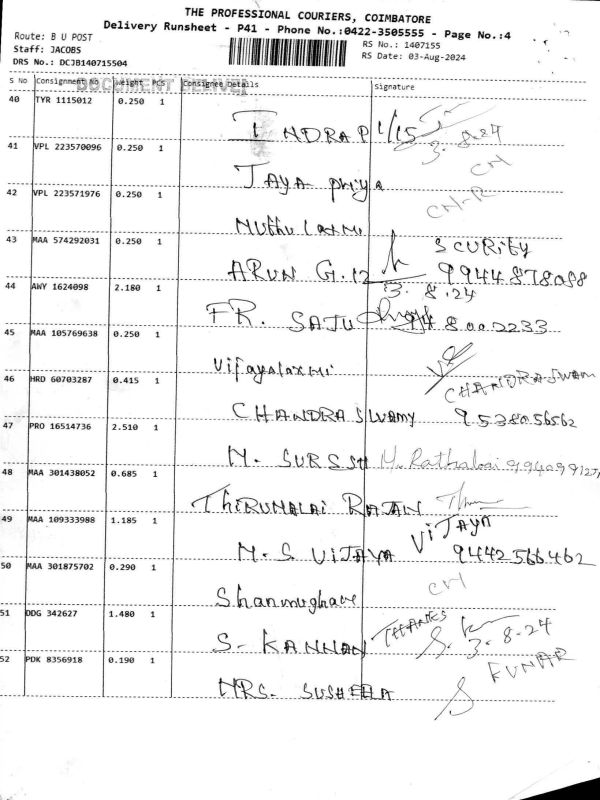 THE PROFESSIONAL COURIERS, COIMBATORE
Delivery Runsheet - P41 - Phone No.:0422-3505555 - Page No.:4
Route: B U POST
RS No.: 1407155
Staff: JACOBS
RS Date: 03-Aug-2024
DRS No.: DCJB140715504
DOCUMENT DELIVERY
S No Consignment No Weight Pcs Consignee Details Signature
40 TYR 1115012 0.250 1
INDRAP 1/15 3.8.24
41 VPL 223570096 0.250 1
JAYA priya CH
42 VPL 223571976 0.250 1
Muthu laxmi CH-R
43 MAA 574292031 0.250 1
SCURITY
ARUN G.12 9944878088
44 AWY 1624098 2.180 1
3.8.24
FR. SAJU 948.0002233
45 MAA 105769638 0.250 1
Vijayalaxmi
46 HRD 60703287 0.415 1
CHANDRASWAM
CHANDRA SWAMY 9538056562
47 PRO 16514736 2.510 1
M. SURSSH M. Rathabai
48 MAA 301438052 0.685 1
THIRUMALAI RAJAN
49 MAA 109333988 1.185 1
VIJAYA
M.S VIJAYA 9442566462
50 MAA 301875702 0.290 1
CH
51 DDG 342627 1.480 1
THANKS
S. KANNAN 3.8-24
52 PDK 8356918 0.190 1
KUMAR
MRS. SUSHEELA